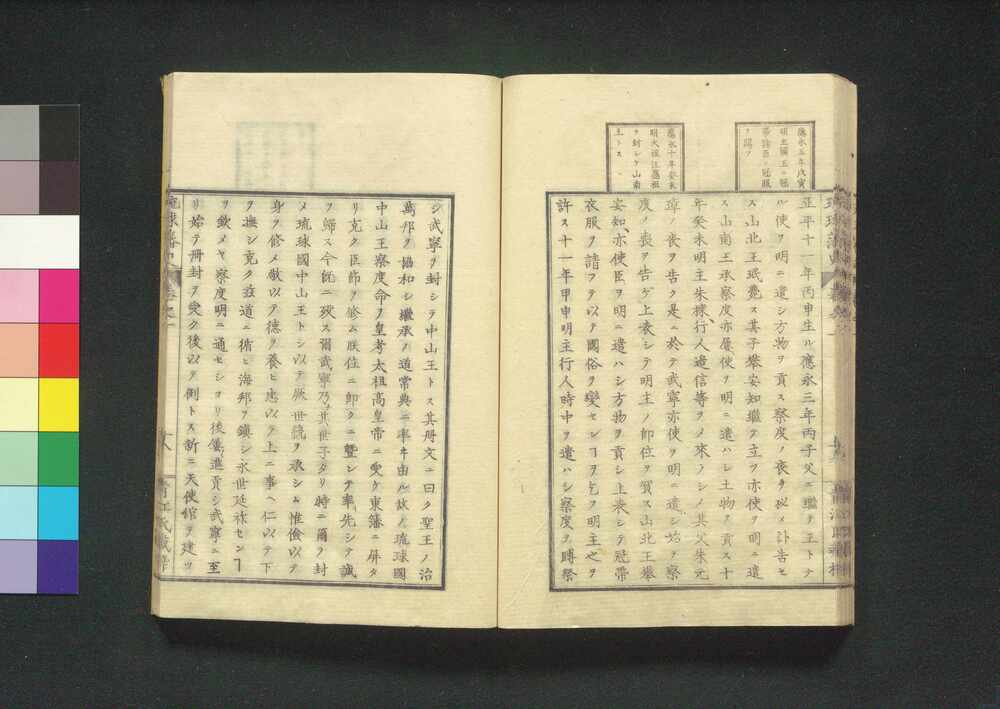 應永五年戊寅
明主國王ニ冠
帶諸臣ニ冠服
ヲ賜フ
應永十年癸未
明大祖汪應祖
ヲ封シテ山南
王トス
正平十一年丙申生ル應永三年丙子父ニ繼テ王トナ
ル使ヲ明ニ遣シ方物ヲ貢ス察度ノ喪タ以メ訃告セ
ス山北王珉薨ス其子攀安知繼テ立ツ亦使ヲ明ニ遣
ス山南王承察度亦屢使ヲ明ニ遣ハシ土物ヲ貢ス十
年癸未明主朱棣行人邊信等ヲメ來ノシメ其父朱元
璋ノ喪ヲ告ク是ニ於テ武寧亦使ヲ明ニ遣シ始テ察
度ノ喪ヲ告ケ上表シテ明主ノ即位ヲ賀ス山北王攀
安知亦使臣ヲ明ニ遣ハシ方物ヲ貢シ上表シテ冠帶
衣服ヲ請フテ以テ國俗ヲ變センヿヲ乞フ明主之ヲ
許ス十一年甲申明主行人時中ヲ遣ハシ察度ヲ賻祭
シ武寧ヲ封シテ中山王トス其册文ニ曰ク聖王ノ治
萬邦ヲ協和シ繼承ノ道常典ニ率ヰ由ル故ノ琉球國
中山王察度命ヲ皇考太祖高皇帝ニ受ケ東藩ニ屏タ
リ克ク臣節ヲ修ム朕位ニ即クニ曁ンテ率先シテ誠
ヲ歸ス今既ニ歿ス爾武寧乃其世子タリ時ニ爾ヲ封
メ琉球國中山王トシ以テ厥世ヲ承シム惟儉以テ
身ヲ修メ敬以テ德ヲ養ヒ忠以テ上ニ事ヘ仁以テ下
ヲ撫シ克ク茲道ニ循ヒ海邦ヲ鎮シ永世延祚センヿ
ヲ欽メヤ察度明ニ通セシヨリ後進貢シ武寧ニ至
リ始テ册封ヲ受ク後以テ例トス新ニ天使館ヲ建ツ